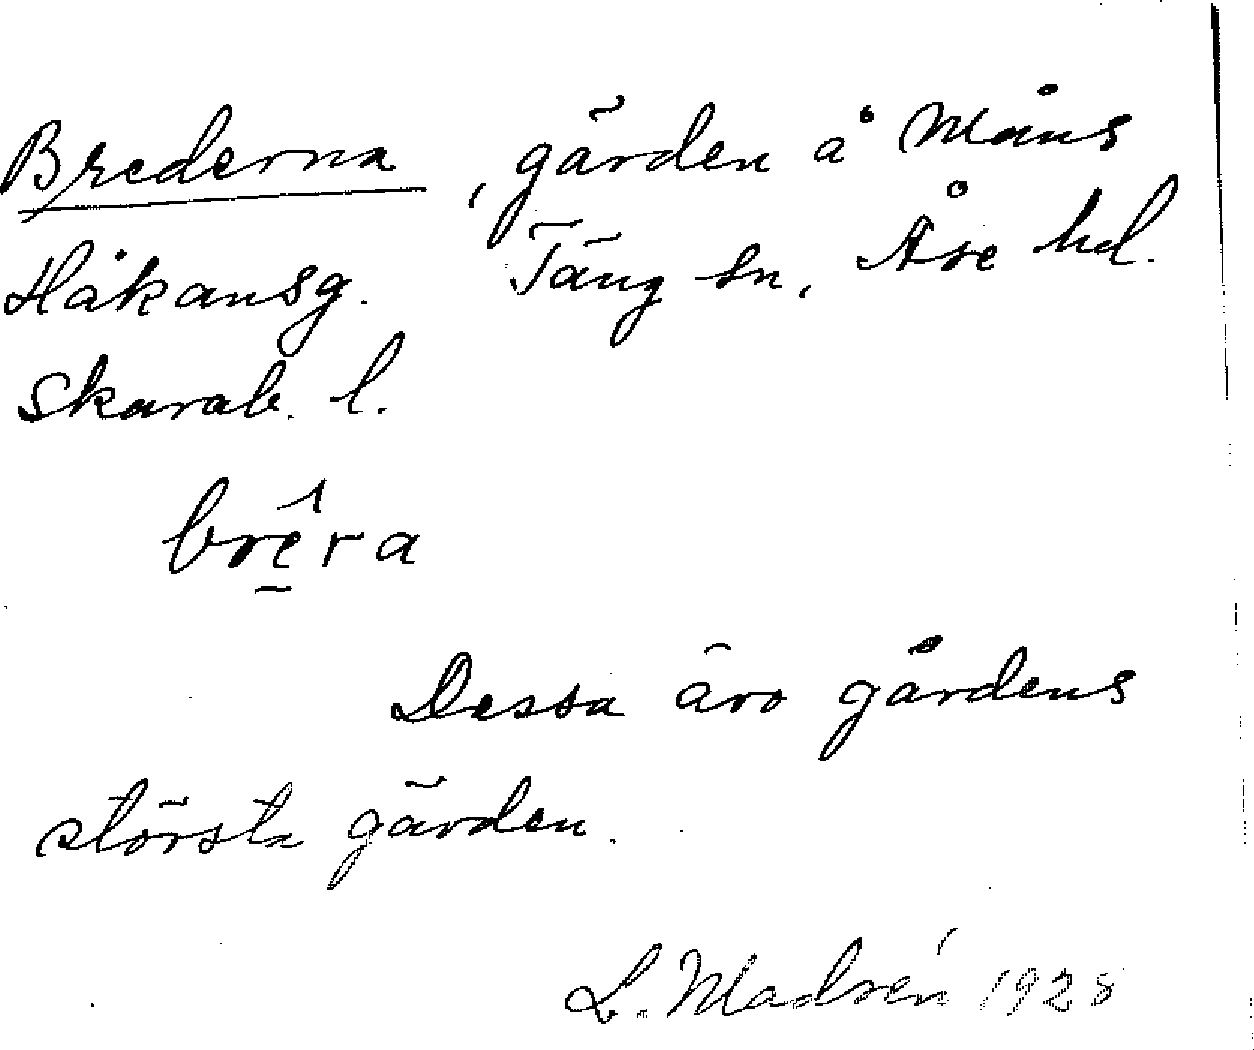 Brederna, gärden å Måns
Håkansg. Täng sn, Åse hd.
Skarab. l.
brêra
Dessa äro gårdens
största gärden.
L. Madsén 1928